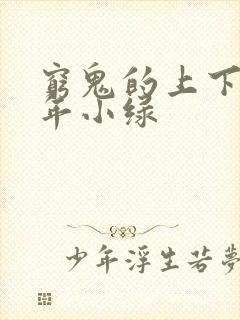 窮鬼的上下
年小绿
少年浮生若夢